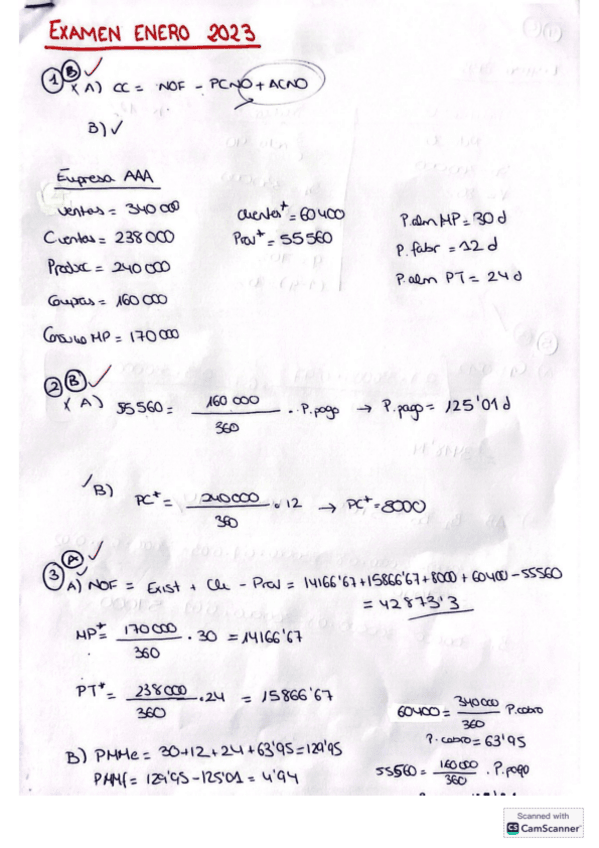 EXAMEN ENERO 2023
1 B ✓
x A) CC = NOF - PCNO + ACNO
B) ✓
Empresa AAA
Ventas = 340 000
Cventas = 238 000
Producc = 240 000
Compras = 160 000
Consumo MP = 170 000
Clientes* = 60 400
Prov* = 55 560
P. alm MP = 30 d
P. fabr = 12 d
P. alm PT = 24 d
2 B ✓
x A) 55 560 = 160 000 / 360 · P. pago → P. pago = 125'01 d
✓ B) PC* = 240 000 / 360 · 12 → PC* = 8000
3 A ✓
A) NOF = Exist + Cle - Prov = 14166'67 + 15866'67 + 8000 + 60400 - 55560
= 42873'3
MP* = 170 000 / 360 · 30 = 14166'67
PT* = 238 000 / 360 · 24 = 15866'67
60400 = 340 000 / 360 P. cobro
P. cobro = 63'95
B) PMMe = 30 + 12 + 24 + 63'95 = 129'95
PMMf = 129'95 - 125'01 = 4'94
55 560 = 160 000 / 360 · P. pago
Scanned with
CS CamScanner